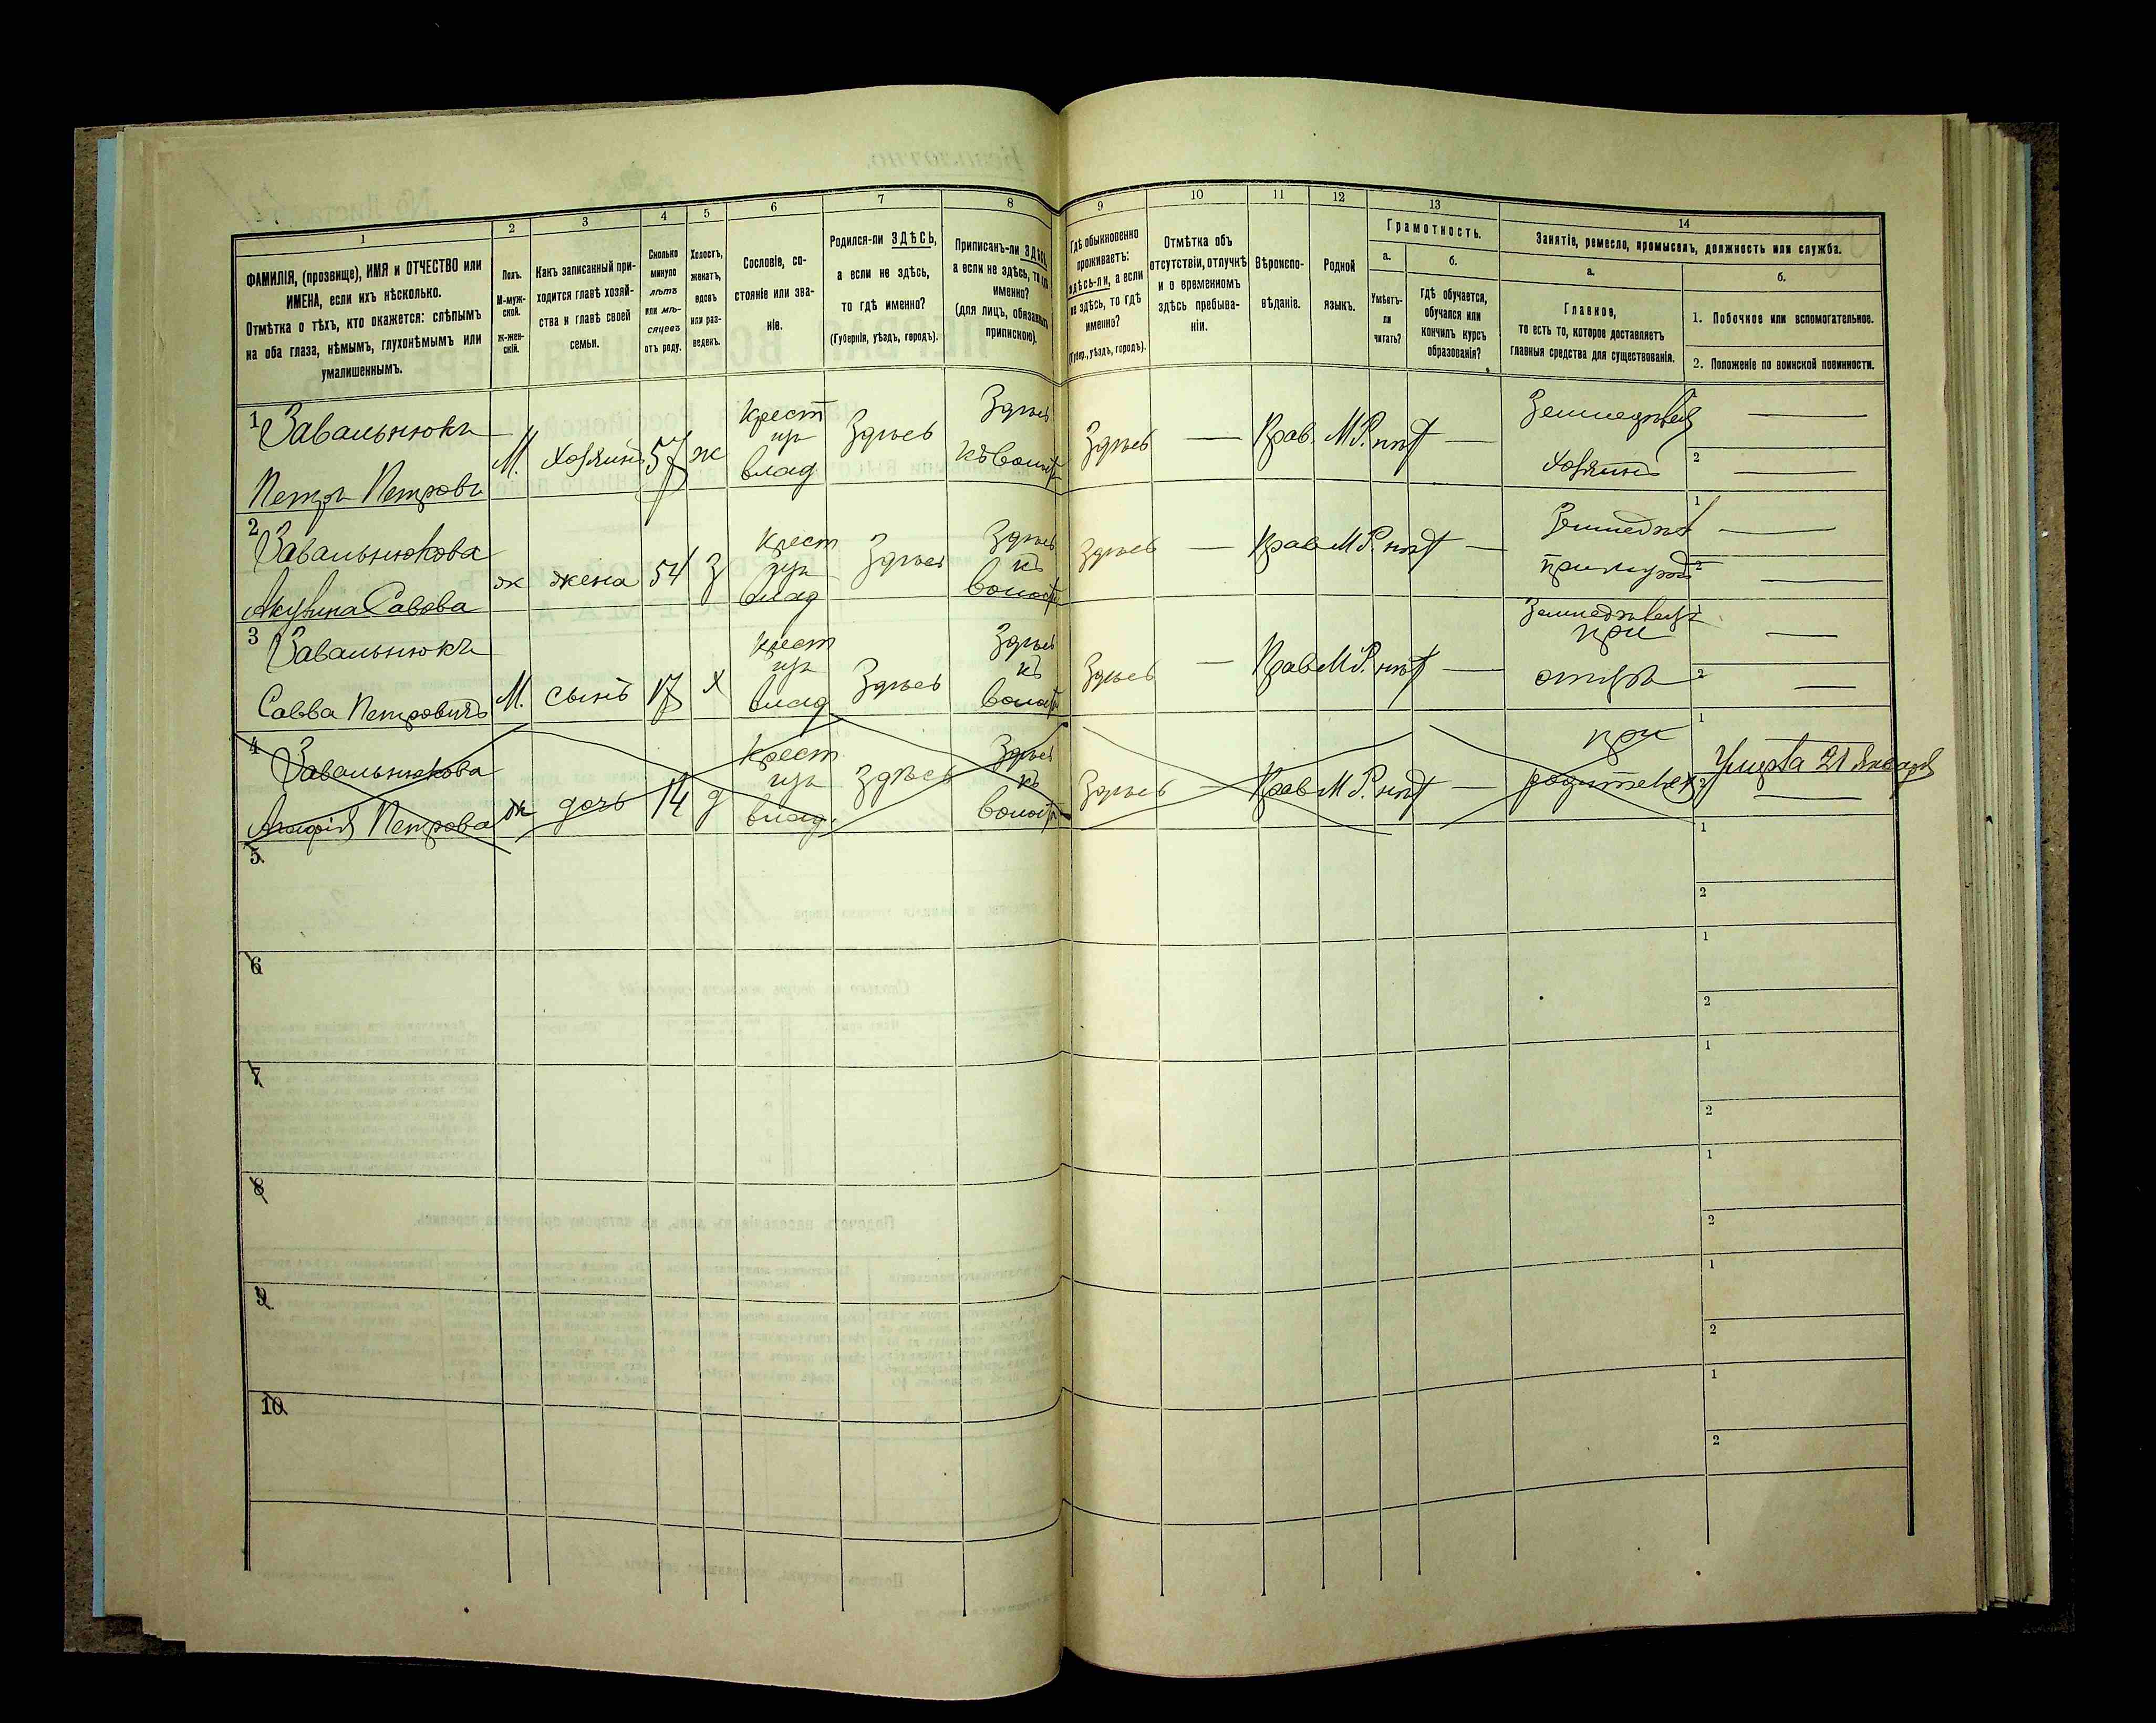 1
2
3
4
5
6
7
8
9
10
11
12
13
14
ФАМИЛІЯ, (прозвище), ИМЯ и ОТЧЕСТВО или
ИМЕНА, если ихъ нѣсколько.
Отмѣтка о тѣхъ, кто окажется: слѣпымъ
на оба глаза, нѣмымъ, глухонѣмымъ или
умалишеннымъ.
Полъ.
М-муж-
ской.
ж-жен-
скій.
Какъ записанный при-
ходится главѣ хозяй-
ства и главѣ своей
семьи.
Сколько
минуло
лѣтъ
или мѣ-
сяцевъ
отъ роду.
Холостъ,
женатъ,
вдовъ
или раз-
веденъ.
Сословіе, со-
стояніе или зва-
ніе.
Родился-ли ЗДѢСЬ,
а если не здѣсь,
то гдѣ именно?
(Губернія, уѣздъ, городъ).
Приписанъ-ли ЗДѢСЬ,
а если не здѣсь, то гдѣ
именно?
(для лицъ, обязанныхъ
припискою).
Гдѣ обыкновенно
проживаетъ:
здѣсь-ли, а если
не здѣсь, то гдѣ
именно?
(Губер., уѣздъ, городъ).
Отмѣтка объ
отсутствіи, отлучкѣ
и о временномъ
здѣсь пребыва-
ніи.
Вѣроиспо-
вѣданіе.
Родной
языкъ.
Грамотность.
а.
Умѣетъ-
ли
читать?
б.
гдѣ обучается,
обучался или
кончилъ курсъ
образованія?
Занятіе, ремесло, промыселъ, должность или служба.
а.
Главное,
то есть то, которое доставляетъ
главныя средства для существованія.
б.
1. Побочное или вспомогательное.
2. Положеніе по воинской повинности.
1
Завальнюкъ
Петръ Петровъ
М. Хозяинъ 57 ж
Крест
изъ
влад
Здѣсь
Здѣсь
къ волост
Здѣсь — Прав. М Р. нѣт —
Земледѣлец
Хозяинъ
2
2
Завальнюкова
Акулина Савова
ж жена 54 З
Крест
изъ
влад
Здѣсь
Здѣсь
къ
волост
Здѣсь — Прав М Р. нѣт —
Земледѣл
при муж
1
2
3
Завальнюкъ
Савва Петровичъ
М. сынъ 17 Х
Крест
изъ
влад
Здѣсь
Здѣсь
къ
волост
Здѣсь — Прав М Р. нѣт —
Земледѣлец
при
отцѣ
2
4
Завальнюкова
Петрова
ж дочь 14 д
Крест
изъ
влад.
Здѣсь
Здѣсь
къ
волост
Здѣсь — Прав М Р. нѣт —
при
родителях
1
Умерла 21 Января
2
5
1
2
6
1
2
7
1
2
8
1
2
9
1
2
10
1
2